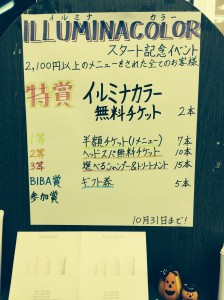 イルミナ カラー
ILLUMINACOLOR
スタート記念イベント
2,100円以上のメニューをされた全てのお客様
特賞 イルミナカラー
無料チケット 2本
1等 半額チケット(1メニュー) 7本
2等 ヘッドスパ無料チケット 10本
3等 選べるシャンプー&トリートメント 15本
BIBA賞 ギフト券 5本
参加賞
10月31日まで!